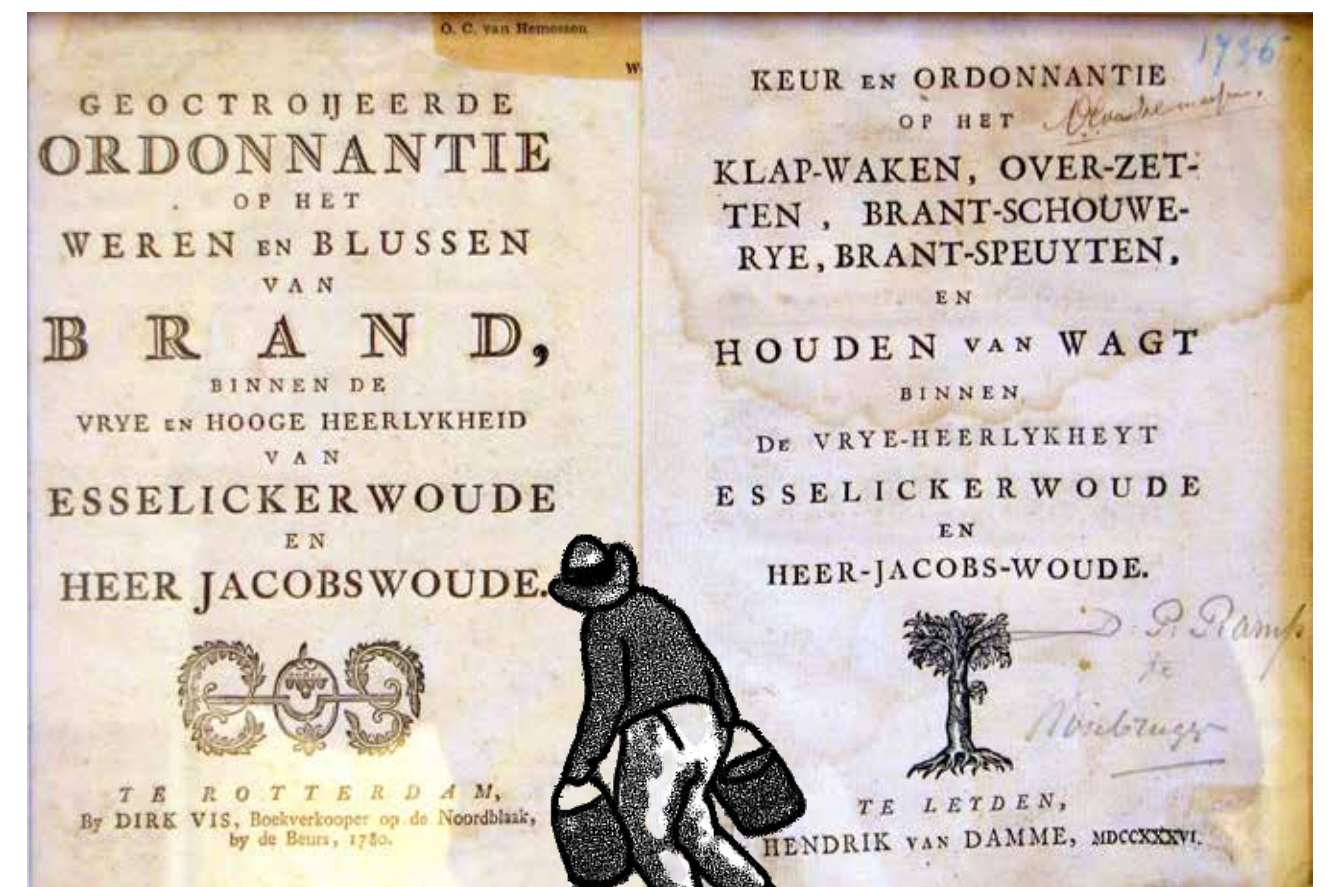 O. C. van Hemessen
W
GEOCTROIJEERDE
ORDONNANTIE
OP HET
WEREN EN BLUSSEN
VAN
BRAND,
BINNEN DE
VRYE EN HOOGE HEERLYKHEID
VAN
ESSELICKERWOUDE
EN
HEER JACOBSWOUDE.
TE ROTTERDAM,
By DIRK VIS, Boekverkooper op de Noordblaak,
by de Beurs, 1780.
1736
KEUR EN ORDONNANTIE
OP HET
KLAP-WAKEN, OVER-ZET-
TEN, BRANT-SCHOUWE-
RYE, BRANT-SPEUYTEN,
EN
HOUDEN VAN WAGT
BINNEN
DE VRYE-HEERLYKHEYT
ESSELICKERWOUDE
EN
HEER-JACOBS-WOUDE.
D. P. Ramp
te
TE LEYDEN,
HENDRIK VAN DAMME, MDCCXXXVI.